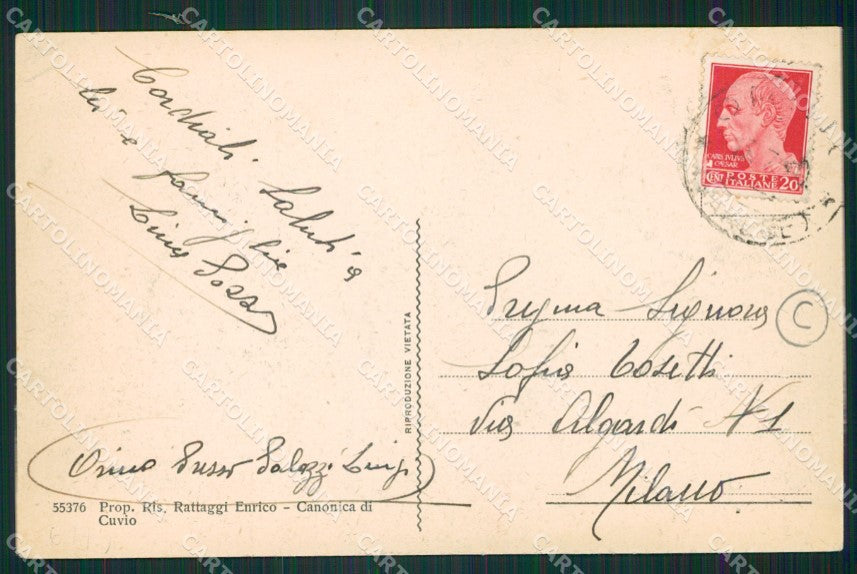 Cordiali saluti a
lei e famiglia
Lino
CAIVS IVLIVS
CAESAR
CENT POSTE ITALIANE 20
RIPRODUZIONE VIETATA
Pregma Signora
C
Sofia Cosetti
Via Algardi N 1
Milano
Orino presso Palozzi Luigi
55376 Prop. Ris. Rattaggi Enrico - Canonica di
Cuvio
CARTOLINOMANIA